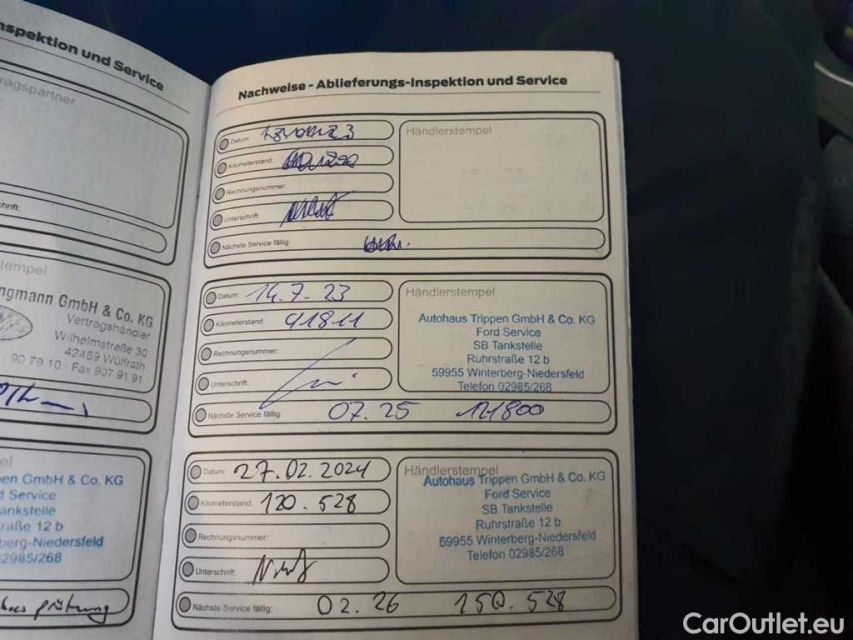 nspektion und Service
ragspartner
hrift:
tempel
ngmann GmbH & Co. KG
Vertragshändler
Wilhelmstraße 30
42489 Wülfrath
90 79 10 · Fax 907 91 91
el
en GmbH & Co. KG
d Service
ankstelle
raße 12 b
berg-Niedersfeld
2985/268
prüfung
Nachweise - Ablieferungs-Inspektion und Service
Datum:
Händlerstempel
Kilometerstand:
Rechnungsnummer:
Unterschrift:
Nächste Service fällig:
Datum: 14.7.23
Händlerstempel
Kilometerstand: 91811
Rechnungsnummer:
Unterschrift:
Autohaus Trippen GmbH & Co. KG
Ford Service
SB Tankstelle
Ruhrstraße 12 b
59955 Winterberg-Niedersfeld
Telefon 02985/268
Nächste Service fällig: 07.25 121800
Datum: 27.02.2024
Händlerstempel
Kilometerstand: 120.528
Rechnungsnummer:
Unterschrift:
Autohaus Trippen GmbH & Co. KG
Ford Service
SB Tankstelle
Ruhrstraße 12 b
59955 Winterberg-Niedersfeld
Telefon 02985/268
Nächste Service fällig: 02.26 150.528
CarOutlet.eu